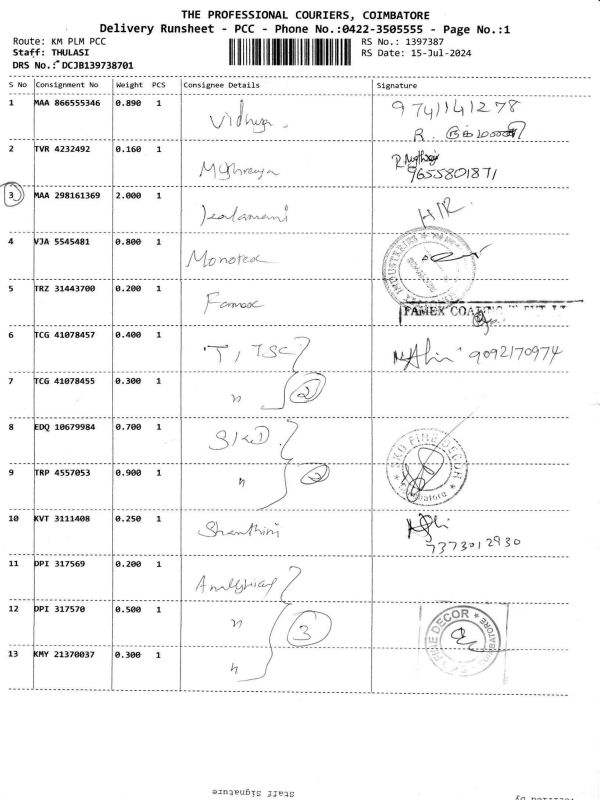 THE PROFESSIONAL COURIERS, COIMBATORE
Delivery Runsheet - PCC - Phone No.:0422-3505555 - Page No.:1
Route: KM PLM PCC
RS No.: 1397387
Staff: THULASI
RS Date: 15-Jul-2024
DRS No.: DCJB139738701
S No Consignment No Weight PCS Consignee Details Signature
1 MAA 866555346 0.890 1 Vidhya 9741141278
R.
2 TVR 4232492 0.160 1 Mythreya
9655801871
3 MAA 298161369 2.000 1
4 VJA 5545481 0.800 1 Monotex
5 TRZ 31443700 0.200 1 Famex
FAMEX
6 TCG 41078457 0.400 1 T, TSC 9092170974
7 TCG 41078455 0.300 1 " 2
8 EDQ 10679984 0.700 1 SKD SKD FINE DECOR
9 TRP 4557053 0.900 1 " 2
10 KVT 3111408 0.250 1 Shanthini
7373012930
11 DPI 317569 0.200 1 Amalgical
12 DPI 317570 0.500 1 " 3 FINE DECOR
13 KMY 21370037 0.300 1 "
Staff Signature